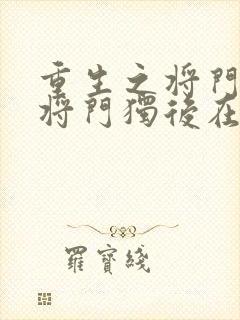 重生之将門
将門獨後在
羅寶綫